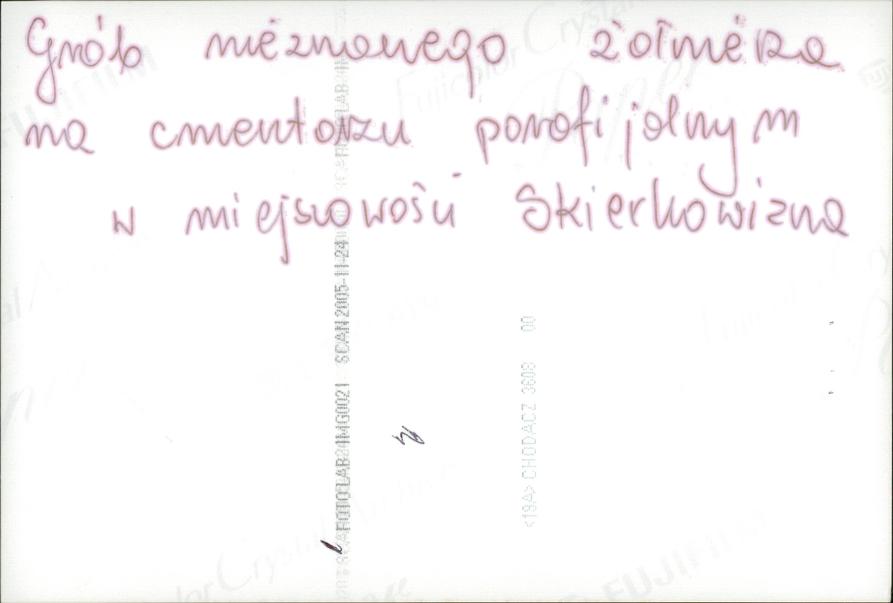 Grób nieznanego żołnierza
na cmentarzu parafijalnym
w miejscowości Skierkowizna
FOTO LAB
IMG0021 SCAN 2005-11-24
<19A> CHODACZ 3608 00
FUJIFILM
Fujicolor Crystal
FUJIFILM